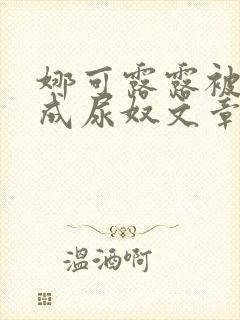 娜可露露被
成尿奴文章
温酒啊